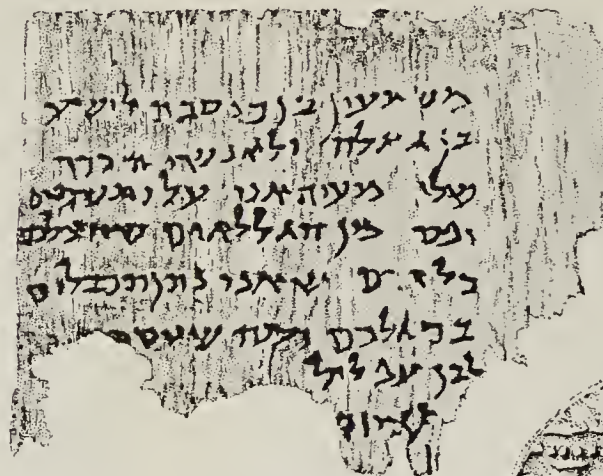 משמעון בן כוסבה לישע
בן גלגלה ולאנשי הכרך
שלו מעיד אני עלי תשמים
יפס מן הגללאים שהצלכם
כל אדם שאני נותן תכבלים
ברגלכם כמה שעסת
לבן עפלול